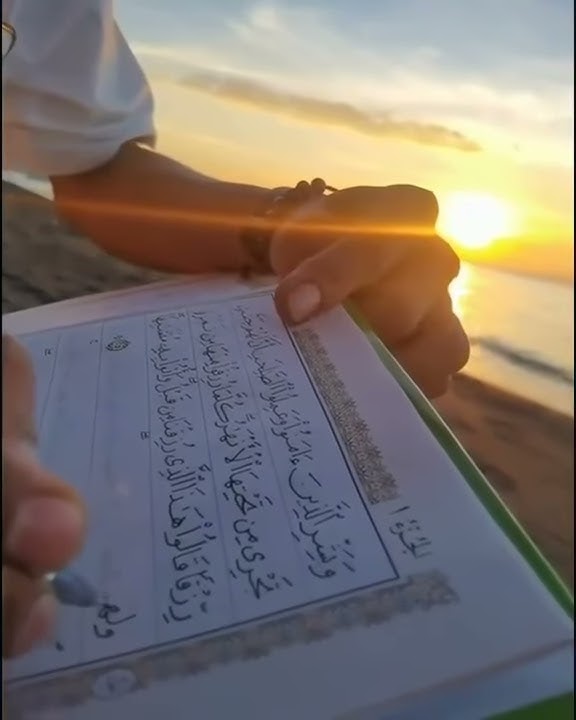 الجزء ١
وَبَشِّرِ الَّذِينَ ءَامَنُوا وَعَمِلُوا الصَّالِحَاتِ أَنَّ لَهُمْ جَنَّاتٍ
تَجْرِي مِنْ تَحْتِهَا الْأَنْهَارُ كُلَّمَا رُزِقُوا مِنْهَا مِنْ ثَمَرَةٍ
رِزْقًا قَالُوا هَذَا الَّذِي رُزِقْنَا مِنْ قَبْلُ وَأُتُوا بِهِ مُتَشَابِهًا
ولهم